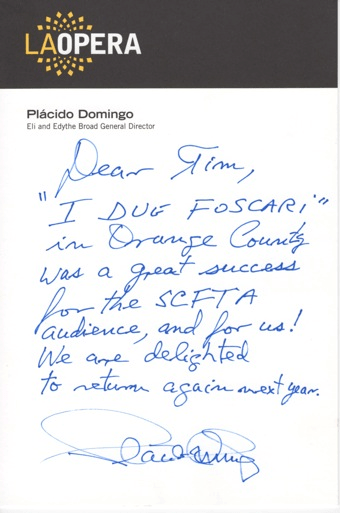 LAOPERA
Plácido Domingo
Eli and Edythe Broad General Director
Dear Tim,
"I DUE FOSCARi"
in Orange County
was a great success
for the SCFTA
audience, and for us!
We are delighted
to return again next year.